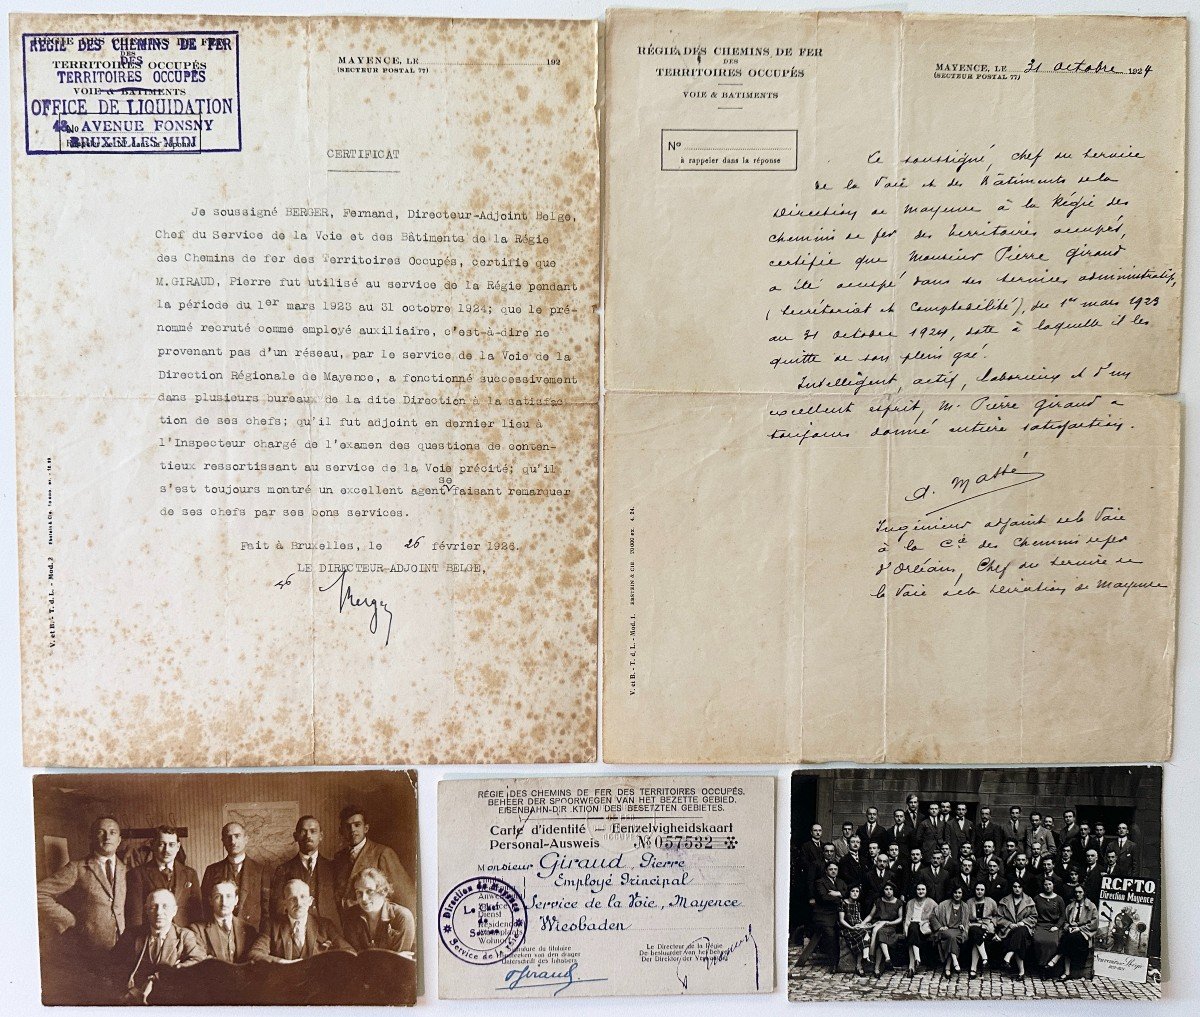 RÉGIE DES CHEMINS DE FER
DES
TERRITOIRES OCCUPÉS
VOIE & BATIMENTS
RÉGIE DES CHEMINS DE FER
DES
TERRITOIRES OCCUPÉS
OFFICE DE LIQUIDATION
48, AVENUE FONSNY
BRUXELLES-MIDI
MAYENCE, LE 192
(SECTEUR POSTAL 77)
CERTIFICAT
Je soussigné BERGER, Fernand, Directeur-Adjoint Belge,
Chef du Service de la Voie et des Bâtiments de la Régie
des Chemins de fer des Territoires Occupés, certifie que
M.GIRAUD, Pierre fut utilisé au service de la Régie pendant
la période du 1er mars 1923 au 31 octobre 1924; que le pré-
nommé recruté comme employé auxiliaire, c'est-à-dire ne
provenant pas d'un réseau, par le service de la Voie de la
Direction Régionale de Mayence, a fonctionné successivement
dans plusieurs bureaux de la dite Direction à la satisfac-
tion de ses chefs; qu'il fut adjoint en dernier lieu à
l'Inspecteur chargé de l'examen des questions de conten-
tieux ressortissant au service de la Voie précité; qu'il
s'est toujours montré un excellent agent se faisant remarquer
de ses chefs par ses bons services.
Fait à Bruxelles, le 26 février 1926.
LE DIRECTEUR-ADJOINT BELGE,
Berger
V. et B. - T. d. L. - Mod. 2
RÉGIE DES CHEMINS DE FER
DES
TERRITOIRES OCCUPÉS
VOIE & BATIMENTS
MAYENCE, LE 31 octobre 1924
(SECTEUR POSTAL 77)
No
à rappeler dans la réponse
Le soussigné, chef du service
de la Voie et des Bâtiments de la
Direction de Mayence à la Régie des
chemins de fer des territoires occupés,
certifie que Monsieur Pierre Giraud
a été occupé dans des services administratifs,
(secrétariat et comptabilité), du 1er mars 1923
au 31 octobre 1924, date à laquelle il les
quitte de son plein gré.
Intelligent, actif, laborieux et d'un
excellent esprit, M. Pierre Giraud a
toujours donné entière satisfaction.
Ingénieur adjoint de la Voie
à la Cie des Chemins de fer
d'Orléans, Chef du Service de
la Voie de la Direction de Mayence
V. et B. - T. d. L. - Mod. 1. EBSTEIN & CIE 20 000 ex. 4. 24.
RÉGIE DES CHEMINS DE FER DES TERRITOIRES OCCUPÉS.
BEHEER DER SPOORWEGEN VAN HET BEZETTE GEBIED.
EISENBAHN-DIREKTION DES BESETZTEN GEBIETES.
Carte d'identité – Eenzelvigheidskaart
Personal-Ausweis № 057532
Monsieur Giraud Pierre
Employé Principal
Service de la Voie, Mayence
Wiesbaden
Direction de Mayence
Le Chef
de
Section
Service de la Voie
Signature du titulaire
Unterschrift des Inhabers
Le Directeur de la Régie
De bestuurder van het Beheer
Der Direktor der
PGiraud
R.C.F.T.O.
Direction Mayence